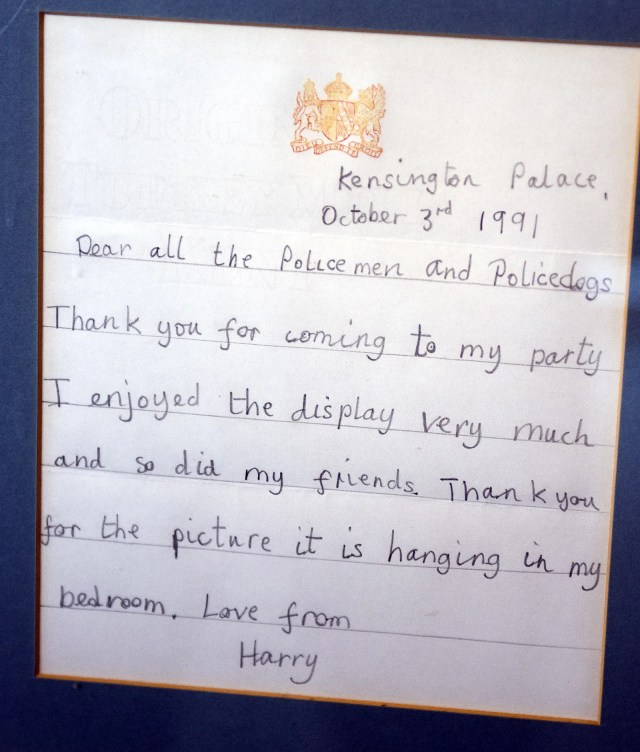 Kensington Palace,
October 3rd 1991
Dear all the Policemen and Policedogs
Thank you for coming to my party
I enjoyed the display very much
and so did my friends. Thank you
for the picture it is hanging in my
bedroom. Love from
Harry